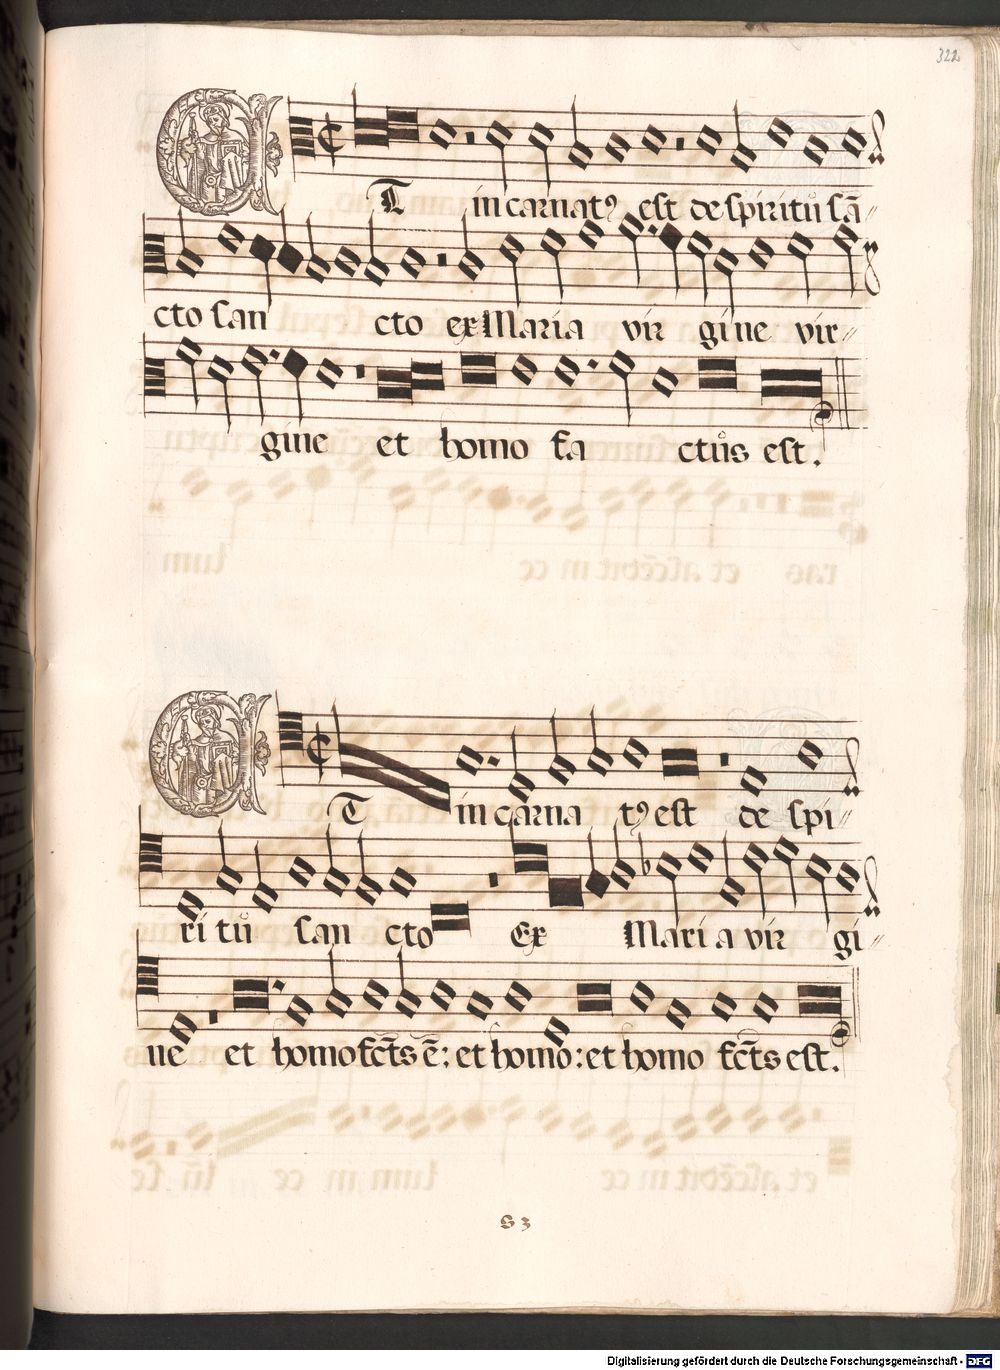 322
ET in carnatꝰ est de spiritu sā
cto san cto ex Maria vir gine vir
gine et homo fa ctus est.
ET in carna tꝰ est de spi
ri tu san cto Ex Mari a vir gi
ne et homo fc̄ts ē: et homo: et homo fc̄ts est.
S 3
Digitalisierung gefördert durch die Deutsche Forschungsgemeinschaft - DFG